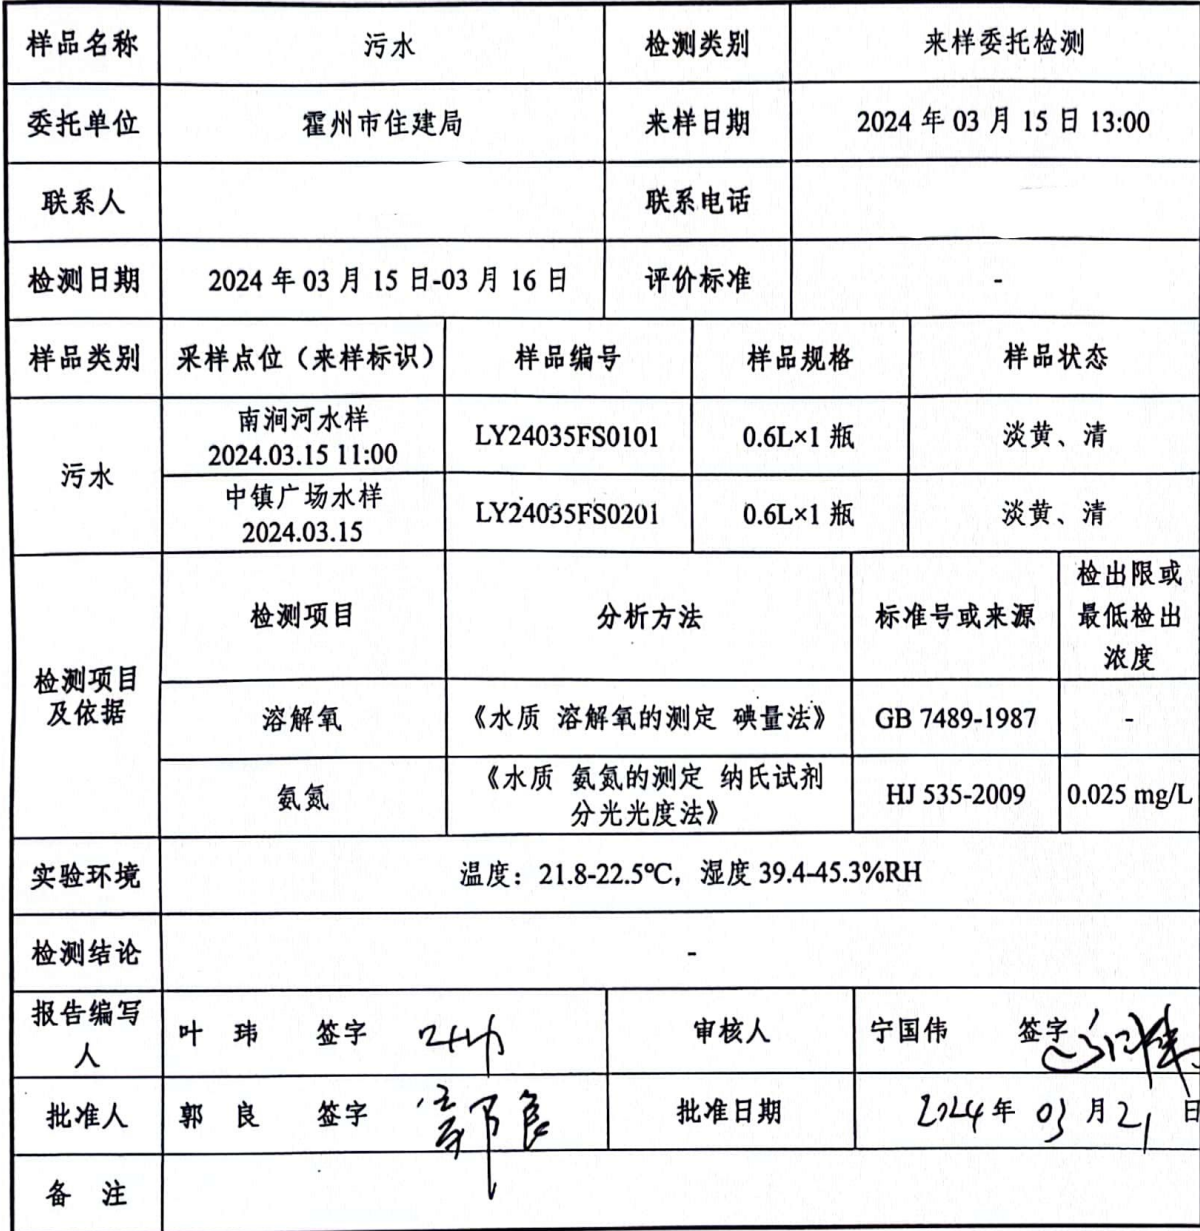 样品名称 污水 检测类别 来样委托检测
委托单位 霍州市住建局 来样日期 2024 年 03 月 15 日 13:00
联系人 联系电话
检测日期 2024 年 03 月 15 日-03 月 16 日 评价标准 -
样品类别 采样点位（来样标识） 样品编号 样品规格 样品状态
污水
南涧河水样
2024.03.15 11:00
LY24035FS0101 0.6L×1 瓶 淡黄、清
中镇广场水样
2024.03.15
LY24035FS0201 0.6L×1 瓶 淡黄、清
检测项目
及依据
检测项目 分析方法 标准号或来源
检出限或
最低检出
浓度
溶解氧 《水质 溶解氧的测定 碘量法》 GB 7489-1987 -
氨氮
《水质 氨氮的测定 纳氏试剂
分光光度法》
HJ 535-2009 0.025 mg/L
实验环境 温度：21.8-22.5℃，湿度 39.4-45.3%RH
检测结论 -
报告编写
人
叶 玮 签字 审核人 宁国伟 签字
批准人 郭 良 签字 郭良 批准日期 2024 年 03 月 21 日
备 注